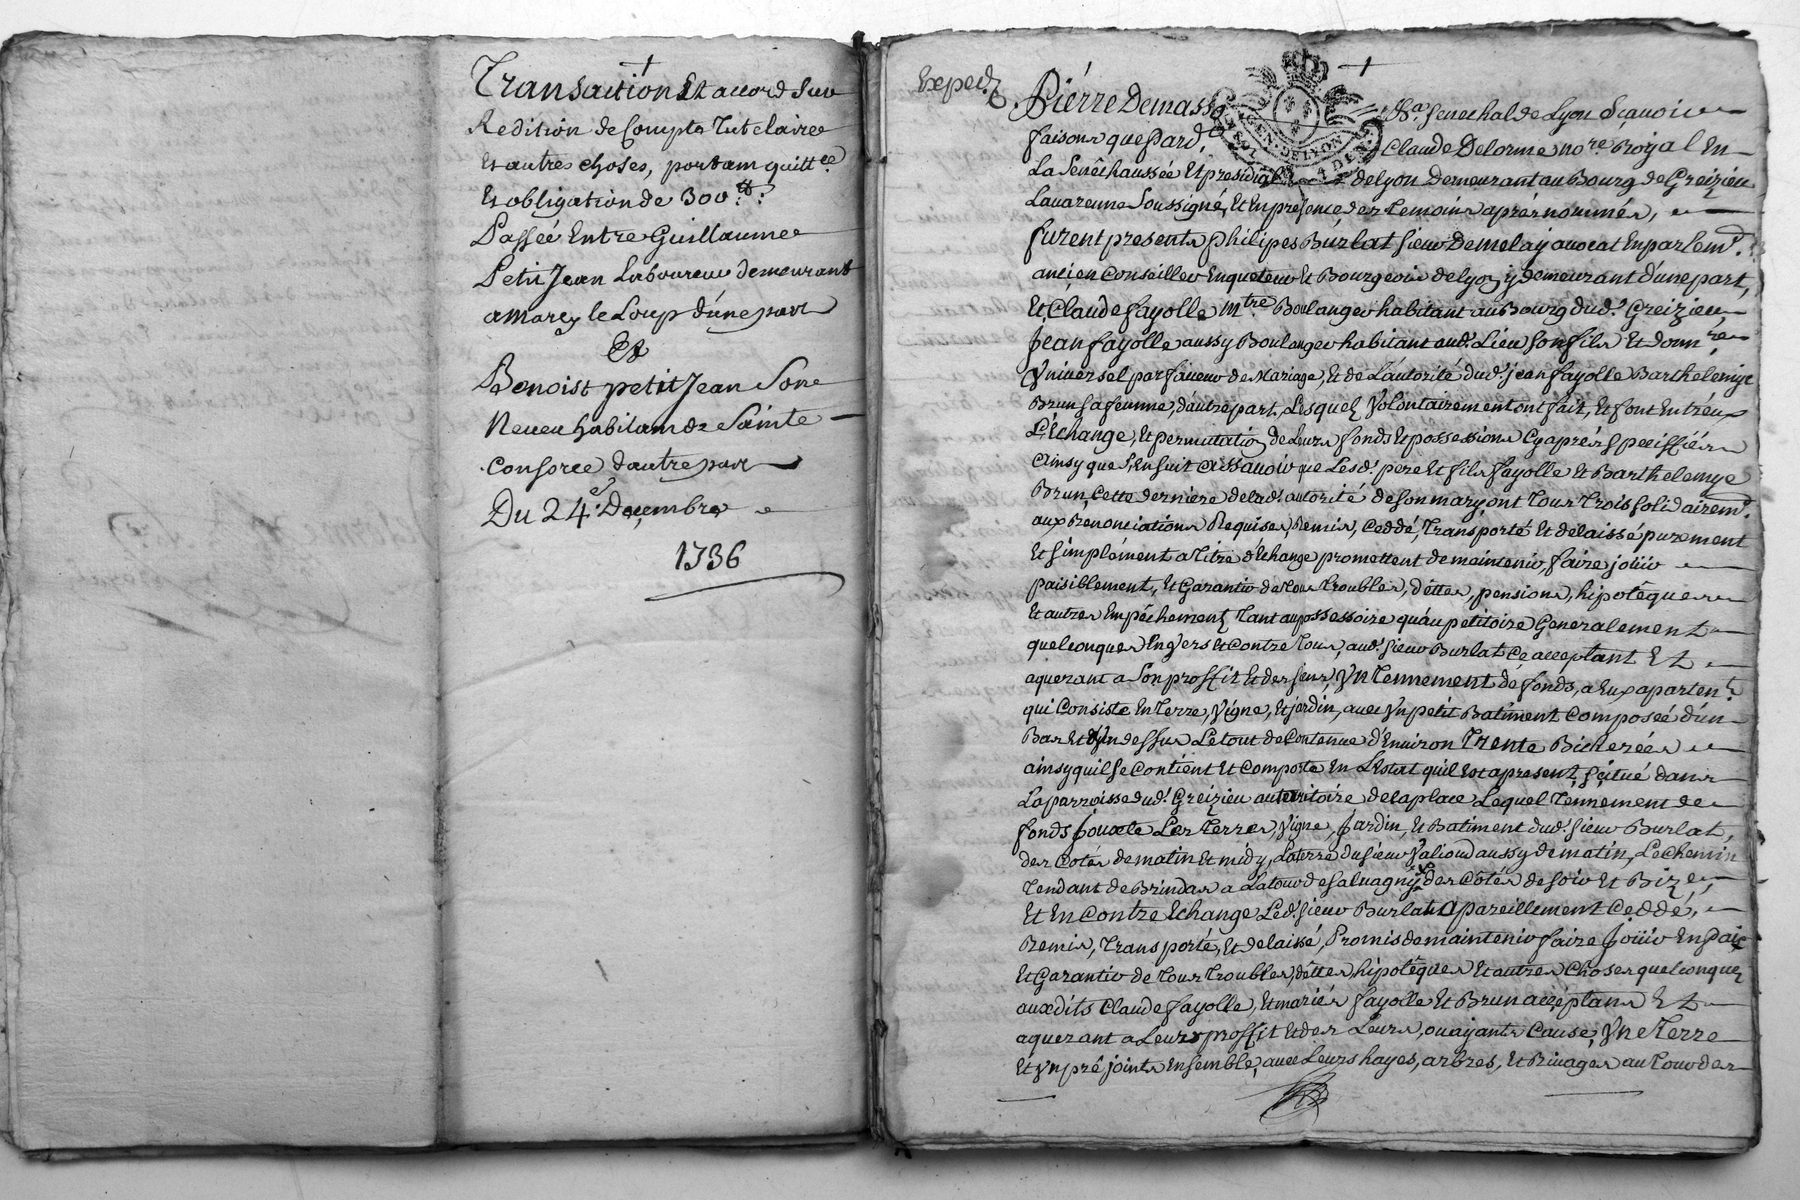 Transaction Et accord Sur
Redition de Compte Tutelaire
Et autres choses, portant quittce
Et obligation de 300 tt.
Passée Entre Guillaume
Petit Jean Laboureur demeurant
a Marcy le Loup d'une part
Et
Benoist petit Jean Son
Neveu habitant de Sainte
Consorce d'autre part
Du 24e. Decembre
1736
Exped.
Pierre Demasso
Senechal de Lyon Sçavoir
faisons que Pard.t Claude Delorme nore Royal En
La Senêchaussée Et presidial de Lyon Demeurant au Bourg de Greizieu
Lavarenne Soussigné, Et En presence des Temoins aprés nommés,
furent presents Philipes Burlat sieur Demelay avocat En parlemt.
ancien Conseiller Enqueteur Et Bourgeois de Lyon y demeurant d'une part,
Et Claude fayolle mtre Boulanger habitant au Bourg dud. Greizieu
Jean fayolle aussy Boulanger habitant aud. Lieu son fils Et donnre
Universel par faveur de Mariage, Et de L'autorité dud. jean fayolle Barthelemye
Brun sa femme, d'autre part, Lesquels Volontairement ont fait, Et font Entréux
L'Echange, Et permutation de Leurs fonds Et possessions Cy aprés speciffiés
ainsy que s'Ensuit assavoir que Lesd. pere Et fils fayolle Et Barthelemye
Brun, Cette derniere de lad. autorité de son mary ont Tous Trois solidairemt.
aux Renonciations Requises, Remis, Ceddé, Transporté Et delaissé purement
Et simplement a Titre d'Echange promettent de maintenir, faire joüir
paisiblement, Et Garantir de Tous Troubles, déttes, pensions, hipotêques
Et autres Empéchements Tant au possessoire qu'au petitoire Generalement
quelconques Envers Et Contre Tous, aud. sieur Burlat Ce acceptant Et
aquerant a Son proffit Et des siens, Un Tennement de fonds, a Eux apartent.
qui Consiste En Terre, Vigne, Et jardin, avec Un petit Batiment Composée d'un
Bas Et Un dessus Le tout de Contenue d'Environ Trente Bicherées
ainsy quil se Contient Et Comporte En L'Estat quil Est a present, scitué dans
La parroisse dud. Greizieu au territoire de La place Lequel Tennement de
fonds Jouxte Les Terres, Vigne, Jardin, Et Batiment dud. sieur Burlat,
des Cotés de matin Et midy, La terre du sieur Valioud aussy de matin, Le Chemin
Tendant de Brindas a La tour de salvagny des Côtés de soir Et Bize,
Et En Contre Echange Led. sieur Burlat a pareillement Ceddé,
Remis, Transporté, Et delaissé, Promis de maintenir faire Joüir En paix
Et Garantir de Tous Troubles, déttes hipotêques Et autres Choses quelconques
auxdits Claude fayolle, Et mariés fayolle Et Brun acceptans Et
aquerant a Leurs proffit Et des Leurs, ou ayants Cause, Une Terre
Et Un pré joints Ensemble, avec Leurs hayes, arbres, Et Rivages au Tour des